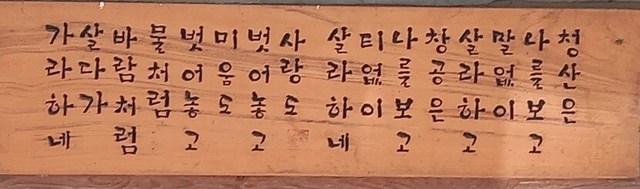 청산은
나를보고
말없이
살라하고
창공은
나를보고
티없이
살라하네
사랑도
벗어놓고
미움도
벗어놓고
물처럼
바람처럼
살다가
가라하네